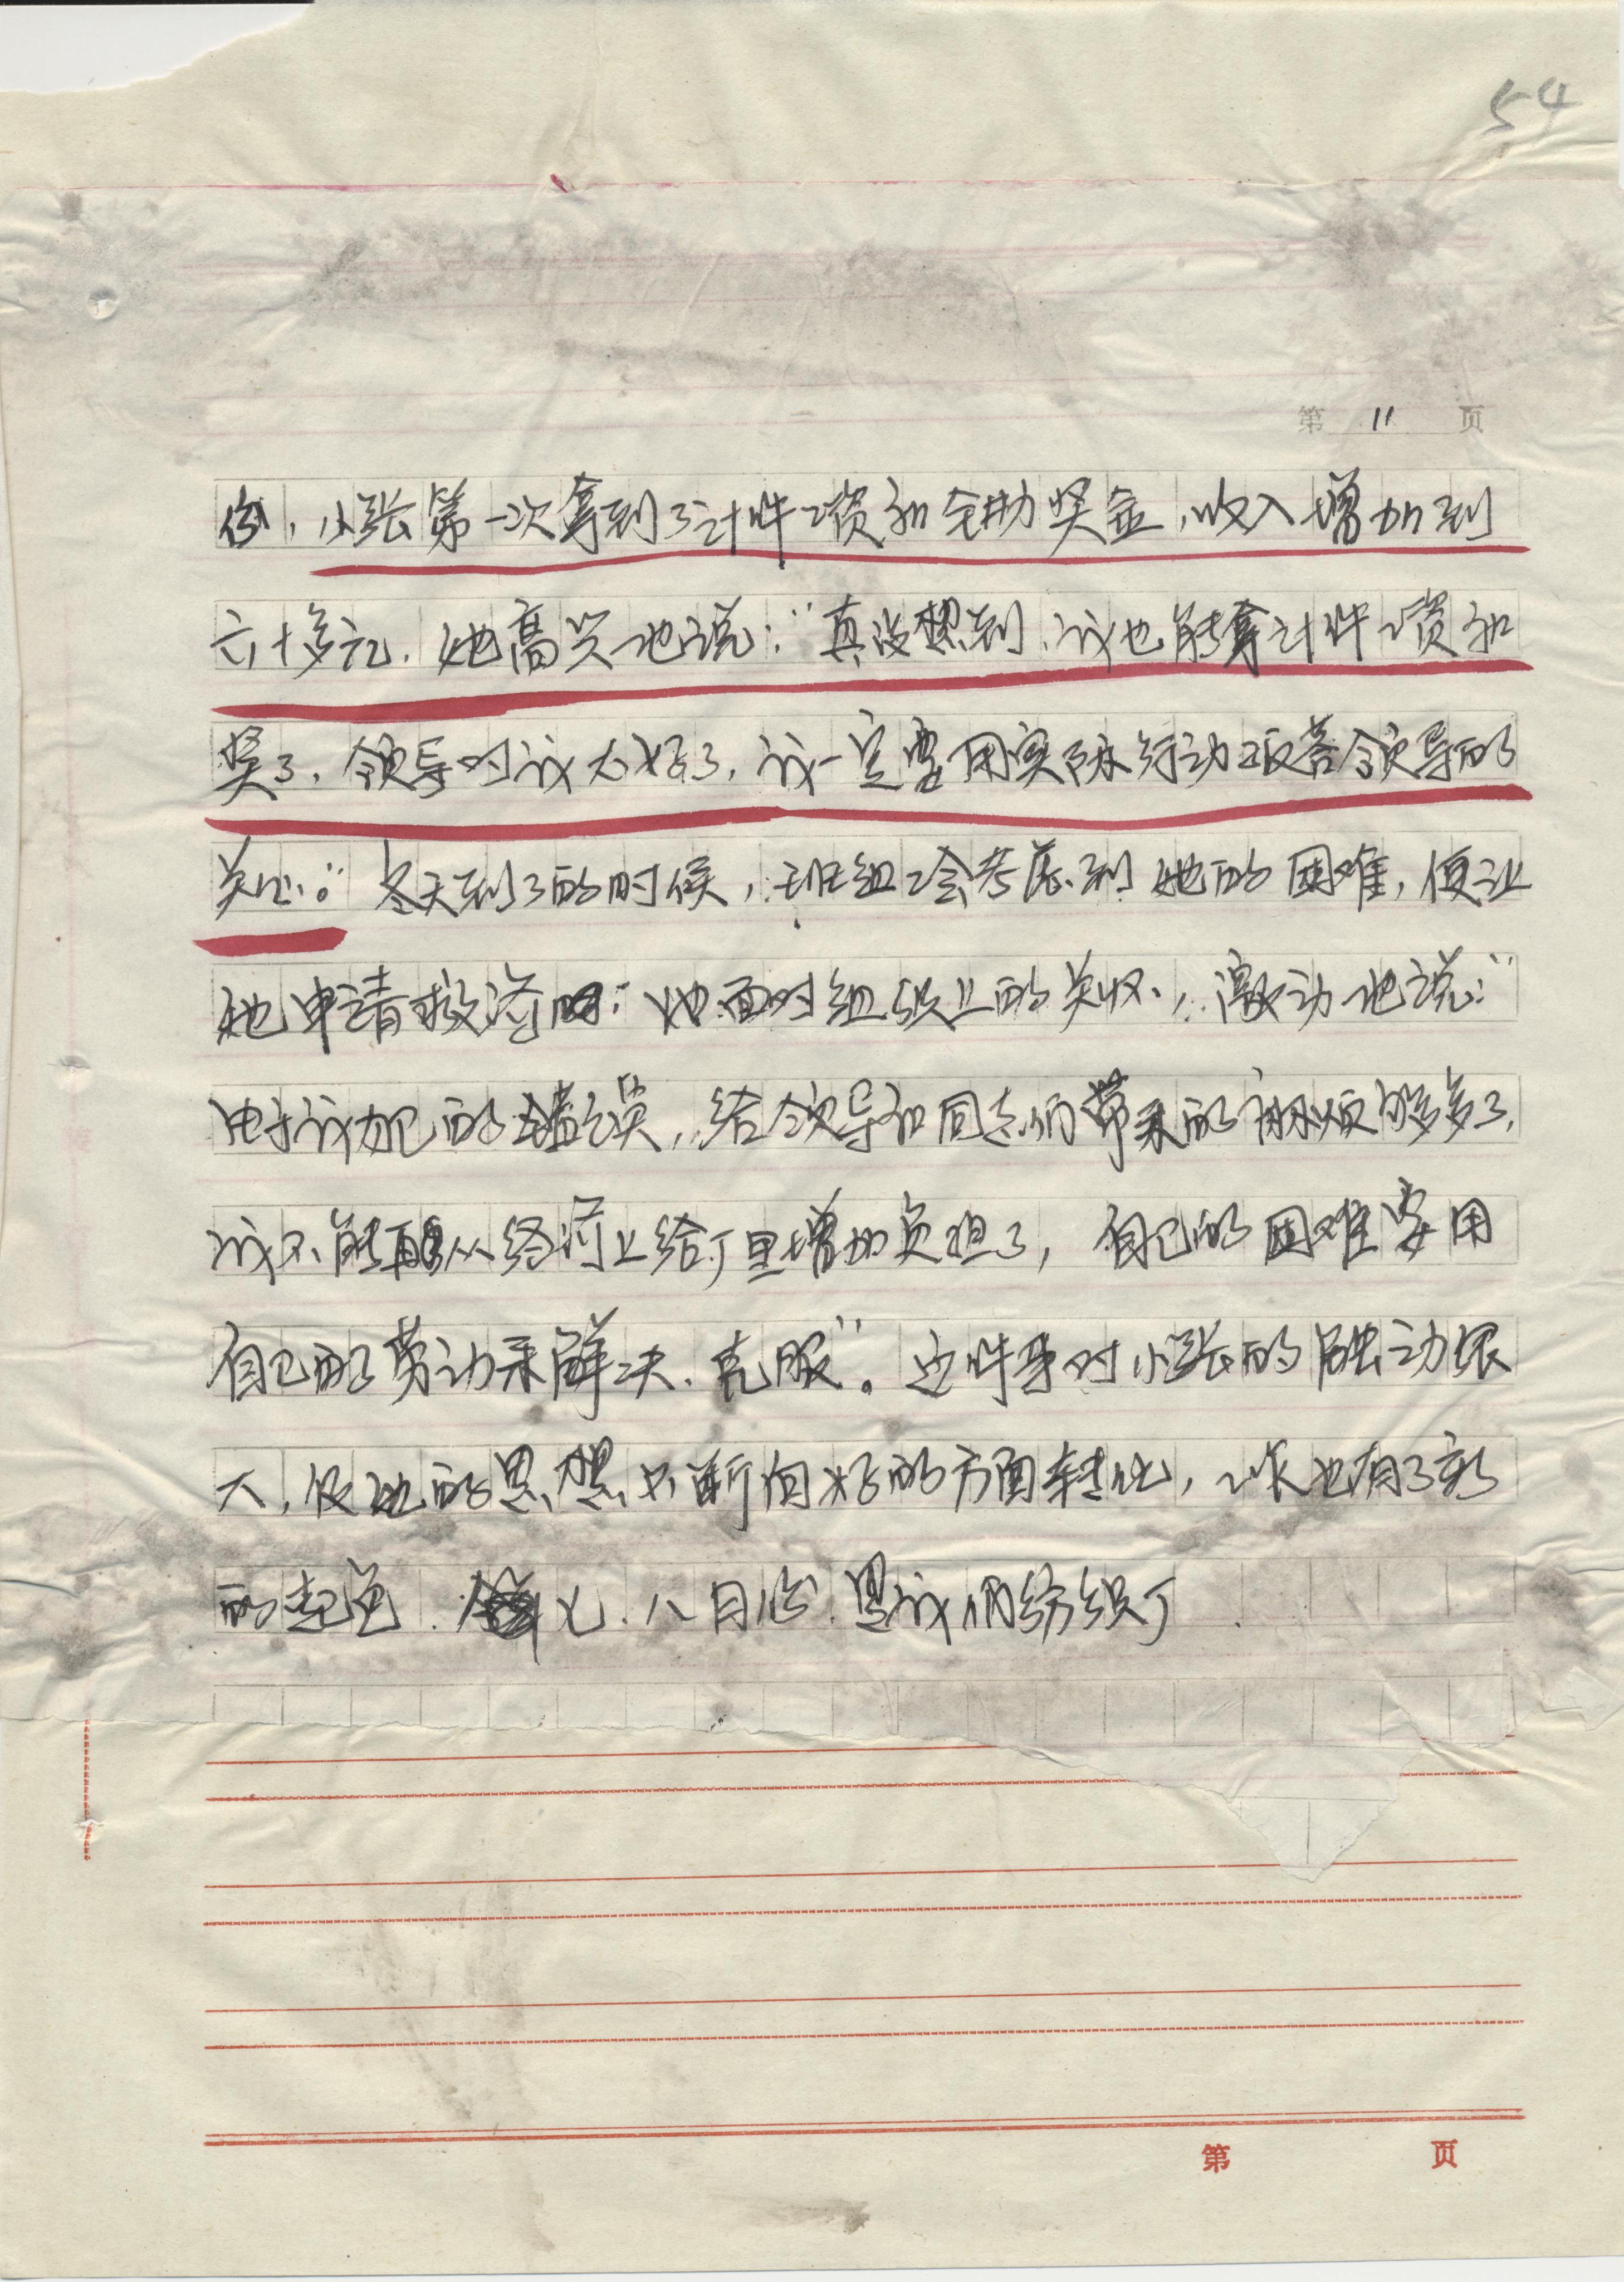 54
第 11 页
例，小张第一次拿到了计件工资和全勤奖金，收入增加到
六十多元。她高兴地说：“真没想到，我也能拿计件工资和
奖了，领导对我太好了，我一定要用实际行动报答领导的
关心。”冬天到了的时候，班组工会考虑到她的困难，便让
她申请救济 她面对组织上的关怀，激动地说：“
由于我犯的错误，给领导和同志们带来的麻烦够多了，
我不能再从经济上给厂里增加负担了，自己的困难要用
自己的劳动来解决、克服”。这件事对小张的触动很
大，使她的思想不断向好的方面转化，工作也有了新
的起色。 七、八月份，是我们纺织厂
第 页